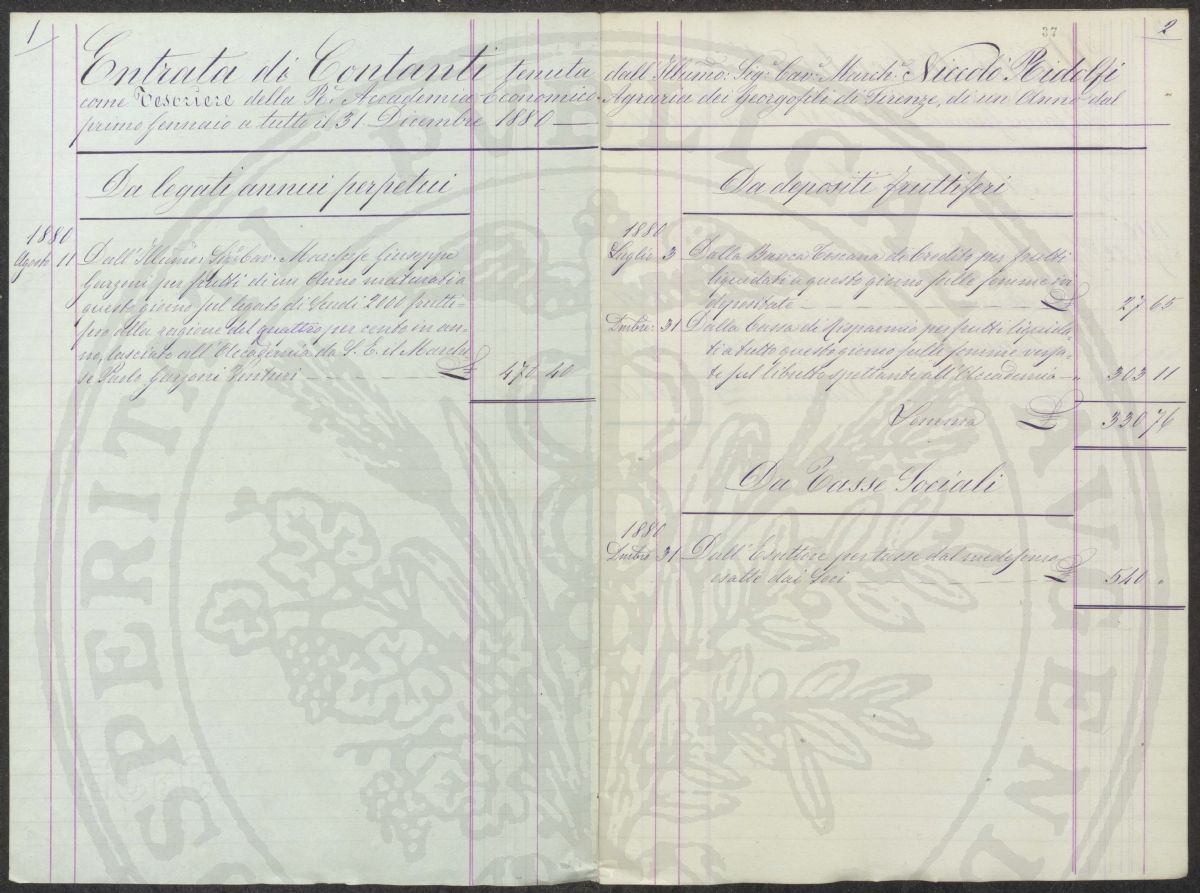 1
Entrata di Contanti tenuta
come Tesoriere della R.ª Accademia Economico-
primo Gennaio a tutto il 31 Dicembre 1880 —
Da legati annui perpetui
1880
Agosto 11 Dall'Illumo: Sig.r Cav.r Marchese Giuseppe
Garzoni per frutti di un Anno maturati a
questo giorno sul legato di Scudi 2000 frutti-
fero alla ragione del quattro per cento in an-
no, lasciato all'Accademia da S. E. il Marche-
se Paolo Garzoni Venturi — £ 470 40
37
2
dall'Illumo: Sig.r Cav.r March.e Niccolò Ridolfi
Agraria dei Georgofili di Firenze, di un Anno dal
Da depositi fruttiferi
1880
Luglio 3 Dalla Banca Toscana di Credito per frutti
liquidati a questo giorno sulle somme in
depositate — £ 27 65
Dmbre: 31 Dalla Cassa di Risparmio per frutti liquida-
ti a tutto questo giorno sulle somme versa-
te sul libretto spettante all'Accademia — " 303 11
Somma £ 330 76
Da Tasse Sociali
1880
Dmbre 31 Dall'Esattore per tasse dal medesimo
esatte dai Soci — £ 540 "
PROSPERITATI PUBLICAE AUGENDAE